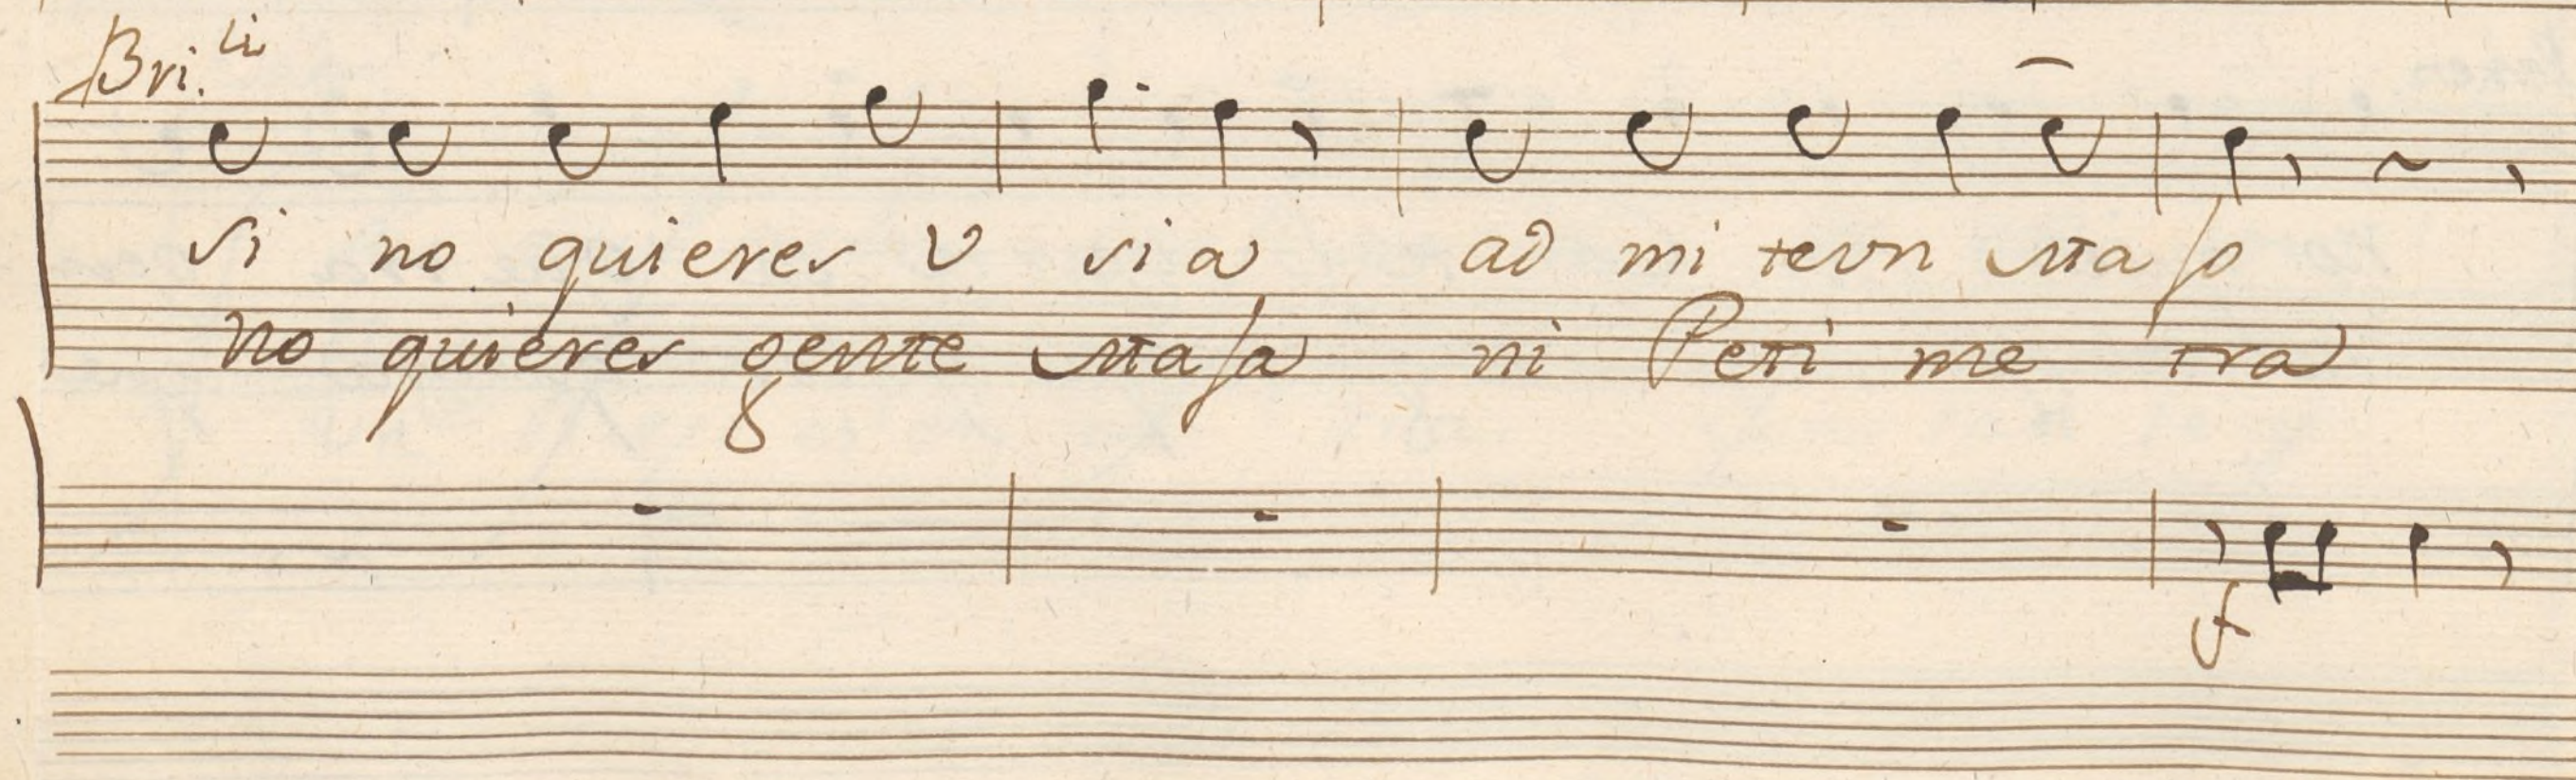 Bri.li
si no quieres V si a ad mi te vn sta so
no quieres gente sta sa ni Peti me tra
f